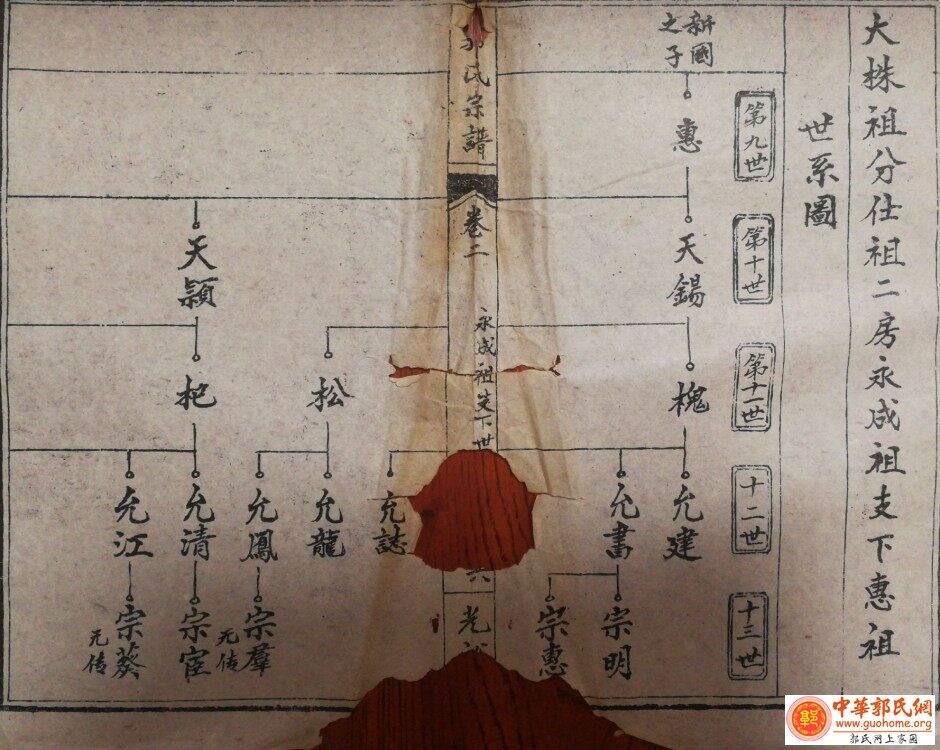 大株祖分仕祖二房永成祖支下惠祖
世系圖
第九世
第十世
第十一世
十二世
十三世
新國
之子
惠
天錫
槐
允建
允書
宗明
宗惠
氏宗譜
卷二
永成祖支下世
允誌
松
允龍
允鳳
宗羣
无传
天穎
杞
允清
宗宦
允江
宗葵
无传
中華郭氏網
www.guohome.org
郭氏网上家园